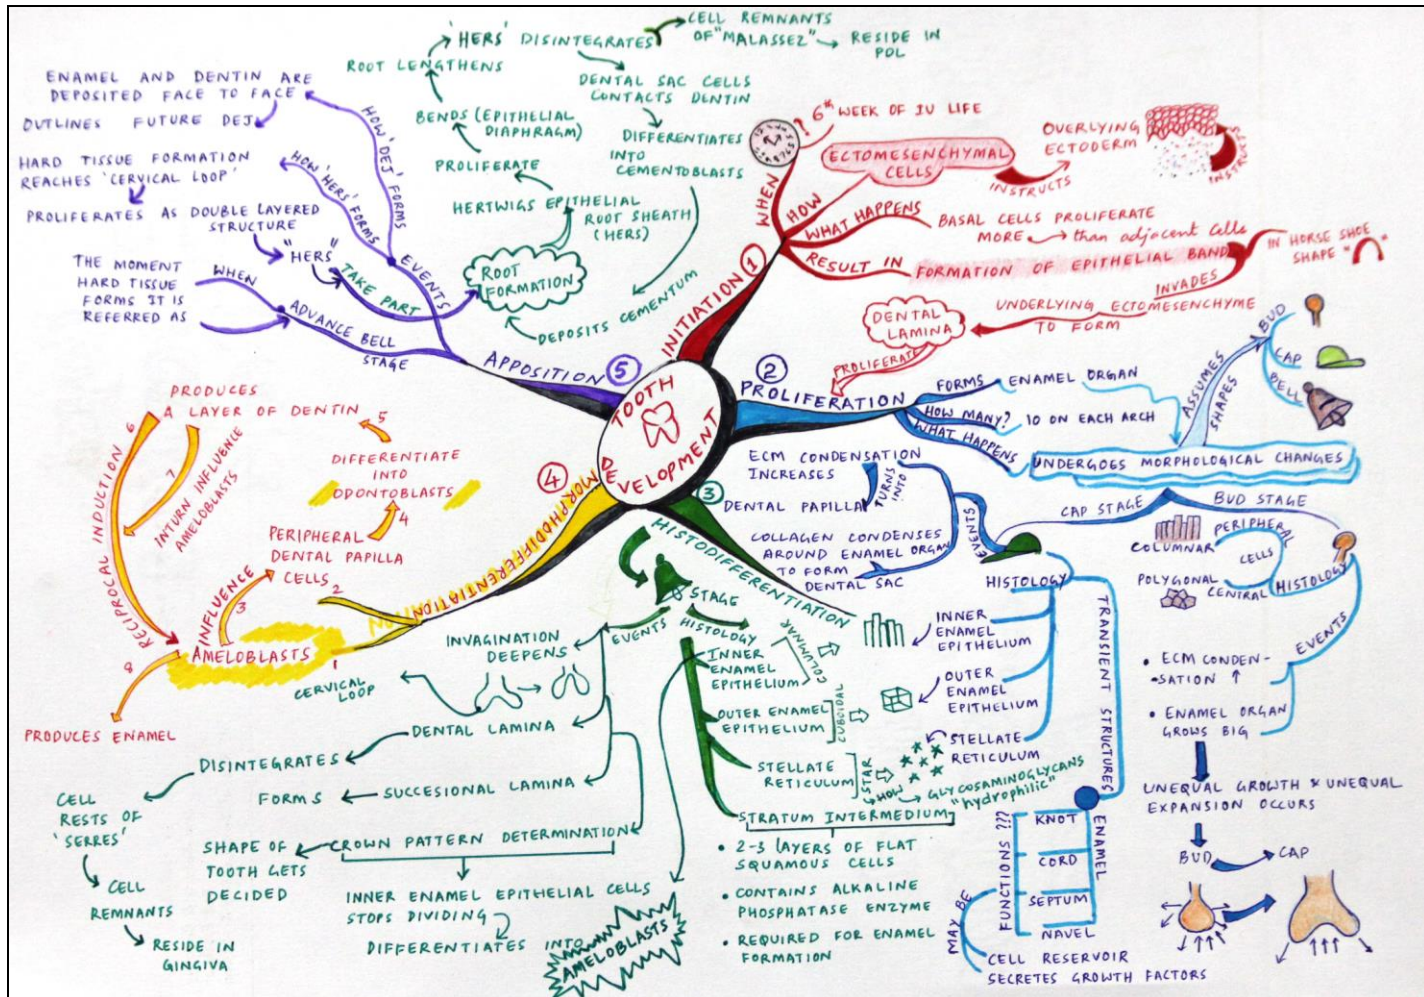 TOOTH
DEVELOPMENT
1
INITIATION
WHEN
6th WEEK OF IU LIFE
HOW
ECTOMESENCHYMAL
CELLS
INSTRUCTS
OVERLYING
ECTODERM
INSTRUCTS
WHAT HAPPENS
BASAL CELLS PROLIFERATE
MORE than adjacent cells
RESULT IN
FORMATION OF EPITHELIAL BAND
IN HORSE SHOE
SHAPE " "
INVADES
UNDERLYING ECTOMESENCHYME
TO FORM
DENTAL
LAMINA
PROLIFERATE
2
PROLIFERATION
FORMS
ENAMEL ORGAN
HOW MANY?
10 ON EACH ARCH
WHAT HAPPENS
UNDERGOES MORPHOLOGICAL CHANGES
ASSUMES
SHAPES
BUD
CAP
BELL
CAP STAGE
BUD STAGE
EVENTS
ECM CONDENSATION
INCREASES
TURNS
INTO
DENTAL PAPILLA
COLLAGEN CONDENSES
AROUND ENAMEL ORGAN
TO FORM
DENTAL SAC
HISTOLOGY
INNER
ENAMEL
EPITHELIUM
OUTER
ENAMEL
EPITHELIUM
STELLATE
RETICULUM
TRANSIENT STRUCTURES
ENAMEL
KNOT
CORD
SEPTUM
NAVEL
FUNCTIONS ???
MAY BE
CELL RESERVOIR
SECRETES GROWTH FACTORS
HISTOLOGY
CELLS
PERIPHERAL
COLUMNAR
CENTRAL
POLYGONAL
EVENTS
• ECM CONDEN-
SATION ↑
• ENAMEL ORGAN
GROWS BIG
UNEQUAL GROWTH & UNEQUAL
EXPANSION OCCURS
BUD
CAP
3
HISTODIFFERENTIATION
STAGE
EVENTS
HISTOLOGY
INNER
ENAMEL
EPITHELIUM
COLUMNAR
OUTER ENAMEL
EPITHELIUM
CUBOIDAL
STELLATE
RETICULUM
STAR
HOW
GLYCOSAMINOGLYCANS
"hydrophilic"
STRATUM INTERMEDIUM
• 2-3 LAYERS OF FLAT
SQUAMOUS CELLS
• CONTAINS ALKALINE
PHOSPHATASE ENZYME
• REQUIRED FOR ENAMEL
FORMATION
INVAGINATION
DEEPENS
CERVICAL LOOP
DENTAL LAMINA
DISINTEGRATES
CELL
RESTS OF
'SERRES'
CELL
REMNANTS
RESIDE IN
GINGIVA
SUCCESIONAL LAMINA
FORMS
CROWN PATTERN DETERMINATION
SHAPE OF
TOOTH GETS
DECIDED
INNER ENAMEL EPITHELIAL CELLS
STOPS DIVIDING
DIFFERENTIATES INTO
AMELOBLASTS
4
MORPHODIFFERENTIATION
1
AMELOBLASTS
2
PERIPHERAL
DENTAL PAPILLA
CELLS
3
INFLUENCE
4
DIFFERENTIATE
INTO
ODONTOBLASTS
5
PRODUCES
A LAYER OF DENTIN
6
RECIPROCAL INDUCTION
7
INTURN INFLUENCE
AMELOBLASTS
8
PRODUCES ENAMEL
5
APPOSITION
ADVANCE BELL
STAGE
WHEN
THE MOMENT
HARD TISSUE
FORMS IT IS
REFERRED AS
EVENTS
HOW 'DEJ' FORMS
ENAMEL AND DENTIN ARE
DEPOSITED FACE TO FACE
OUTLINES FUTURE DEJ
HOW 'HERS' FORMS
HARD TISSUE FORMATION
REACHES 'CERVICAL LOOP'
PROLIFERATES AS DOUBLE LAYERED
STRUCTURE
"HERS"
TAKE PART
ROOT
FORMATION
HERTWIGS EPITHELIAL
ROOT SHEATH
(HERS)
PROLIFERATE
BENDS (EPITHELIAL
DIAPHRAGM)
ROOT LENGTHENS
'HERS' DISINTEGRATES
CELL REMNANTS
OF "MALASSEZ"
RESIDE IN
PDL
DENTAL SAC CELLS
CONTACTS DENTIN
DIFFERENTIATES
INTO
CEMENTOBLASTS
DEPOSITS CEMENTUM